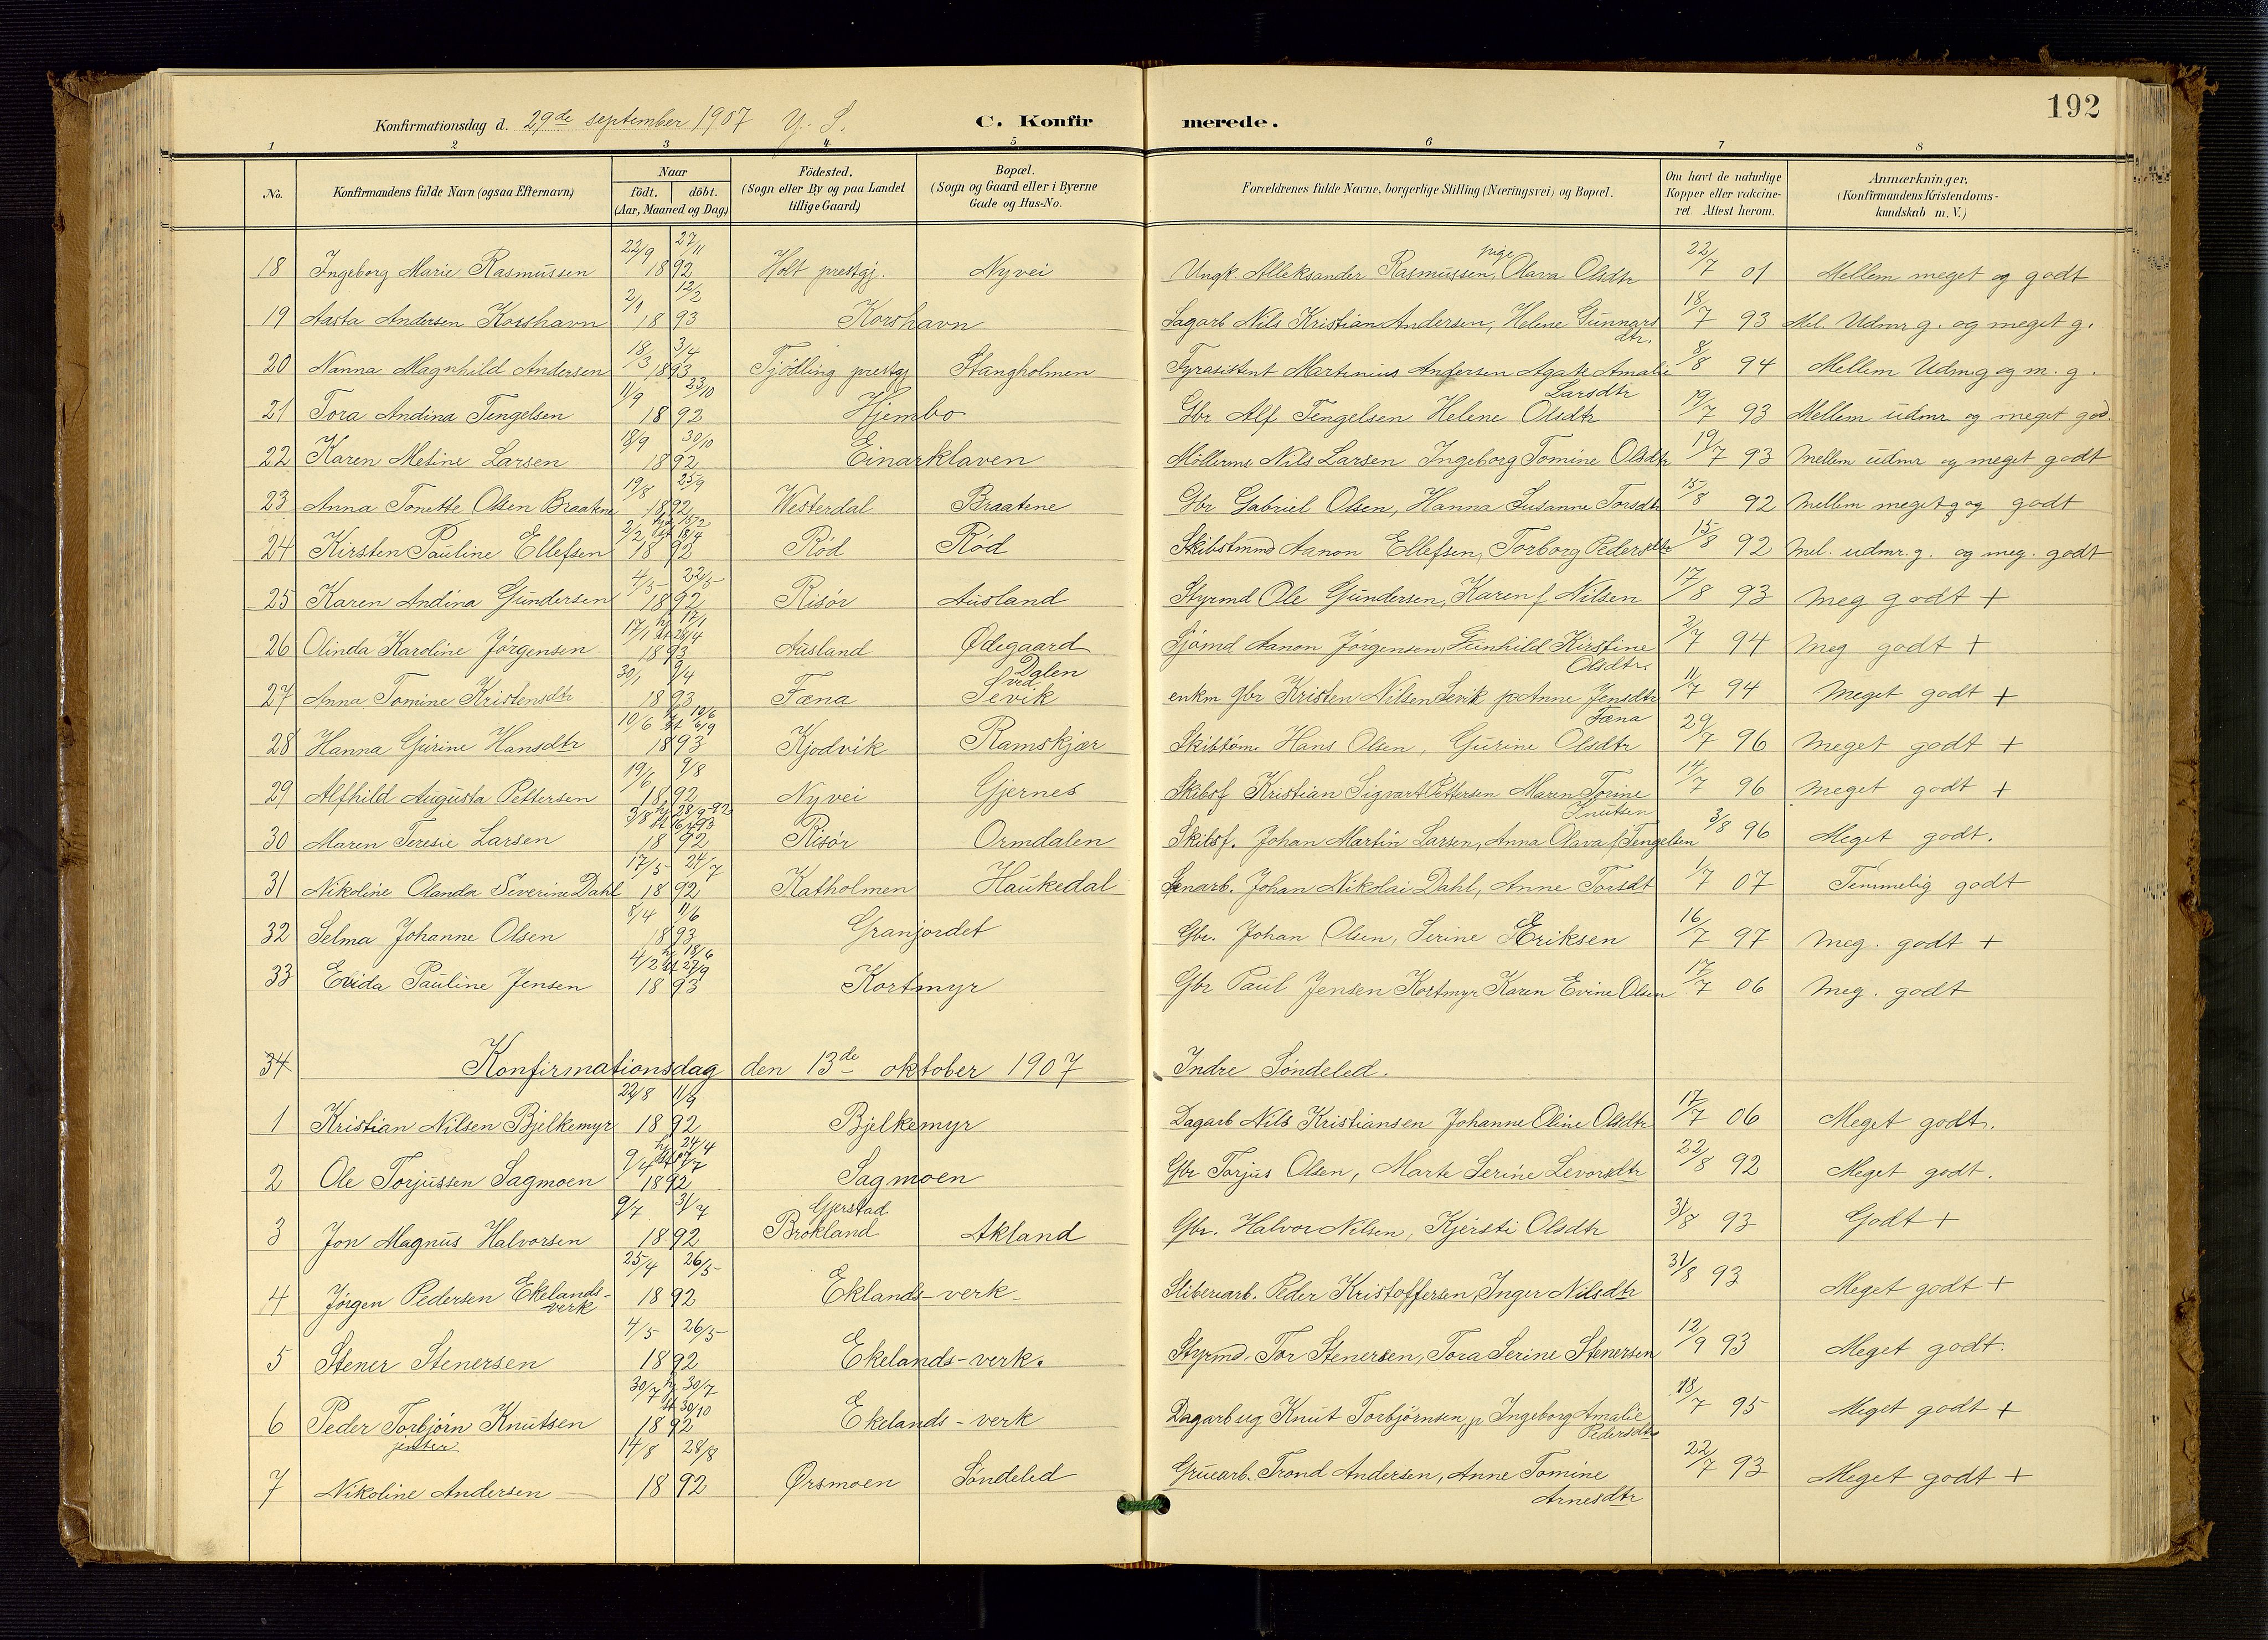 192
Konfirmationsdag d. 29de september 1907 Y. S. C. Konfirmerede.
1 2 3 4 5 6 7 8
No.
Konfirmandens fulde Navn (ogsaa Efternavn)
Naar
födt. döbt.
(Aar, Maaned og Dag)
Födested.
(Sogn eller By og paa Landet
tillige Gaard)
Bopæl.
(Sogn og Gaard eller i Byerne
Gade og Hus-No.
Forældrenes fulde Navne, borgerlige Stilling (Næringsvei) og Bopæl.
Om havt de naturlige
Kopper eller vakcine-
ret. Attest herom.
Anmærkninger.
(Konfirmandens Kristendoms-
kundskab m. V.)
18 Ingeborg Marie Rasmussen 22/9 27/11 1892 Holt prestgj. Nyvei Ungk. Alleksander Rasmussen, pige Olava Olsdtr 22/7 01 Mellem meget og godt
19 Aasta Andersen Korshavn 2/1 12/2 1893 Korshavn Sagarb Nils Kristian Andersen, Helene Gunnarsdtr. 18/7 93 Mel. Udmr g. og meget g.
20 Nanna Magnhild Andersen 18/3 3/4 1893 Tjödling prestgj Stangholmen Fyrasistent Martinius Andersen Agate Amalie Larsdtr 8/8 94 Mellem Udmg og m. g.
21 Tora Andina Tengelsen 11/9 23/10 1892 Hjembo Gbr Alf Tengelsen Helene Olsdtr 19/7 93 Mellem udmr og meget god.
22 Karen Metine Larsen 18/9 30/10 1892 Einarklaven Möllerms Nils Larsen Ingeborg Tomine Olsdtr 19/7 93 mellem udmr og meget godt
23 Anna Tonette Olsen Braatene 19/8 25/9 1892 Westerdal Braatene Gbr Gabriel Olsen, Hanna Susanne Torsdtr 15/8 92 mellem meget g og godt
24 Kirsten Pauline Ellefsen 2/2 hj 15/2 st 18/4 1892 Röd Röd Skibstmmd Aanon Ellefsen, Torborg Pedersdtr 15/8 92 mel. udmr. g. og meg. godt
25 Karen Andina Gundersen 4/5 22/5 1892 Risör Ausland Styrmd Ole Gundersen, Karen f Nilsen 17/8 93 meg godt +
26 Olinda Karoline Jörgensen 17/1 hj 17/1 st 28/4 1893 Ausland Ødegaard Sjömd Aanon Jörgensen, Gunhild Kirstine Olsdtr. 2/7 94 meg godt +
27 Anna Tomine Kristensdtr 30/1 9/4 1893 Fæna Dalen ved Sevik enkm gbr Kristen Nilsen Sevik p Anne Jensdtr Fæna 11/7 94 Meget godt +
28 Hanna Gurine Hansdtr 10/6 hj 10/6 st 6/9 1893 Kjodvik Ramskjær Skibtöm Hans Olsen, Gurine Olsdtr 29/7 96 meget godt +
29 Alfhild Augusta Pettersen 19/6 9/8 1892 Nyvei Gjernes Skibsf Kristian Sigvart Pettersen Maren Torine Knutsen 14/7 96 meget godt +
30 Maren Teresie Larsen 3/8 hj 28/9-92 1892 Risör Ormdalen Skibsf. Johan Martin Larsen, Anna Olava f Tengelsen 3/8 96 Meget godt.
31 Nikoline Olanda Severine Dahl 17/5 24/7 1892 Katholmen Haukedal Johan Nikolai Dahl, Anne Torsdt 1/7 07 Temmelig godt
32 Selma Johanne Olsen 8/4 11/6 1893 Granjordet Gbr. Johan Olsen, Serine Eriksen 16/7 97 meg. godt +
33 Evida Pauline Jensen 4/2 hj 18/6 st 27/9 1893 Kortmyr Gbr Paul Jensen Kortmyr Karen Evine Olsen 17/7 06 meg. godt
34 Konfirmationsdag den 13de oktober 1907 Indre Söndeled.
1 Kristian Nilsen Bjelkemyr 22/8 11/9 1892 Bjelkemyr Dagarb Nils Kristiansen Johanne Oline Olsdtr 17/7 06 Meget godt.
2 Ole Torjussen Sagmoen 9/4 hj 24/4 1892 Sagmoen Gbr Torjus Olsen, Marte Serine Levorsdtr 22/8 92 Meget godt.
3 Jon Magnus Halvorsen 9/7 31/7 1892 Gjerstad Brokland Akland Gbr. Halvor Nilsen, Kjersti Olsdtr 31/8 93 Godt +
4 Jörgen Pedersen Ekelands-verk 25/4 26/5 1892 Eklands-verk Sliberiarb. Peder Kristoffersen, Inger Nilsdtr 31/8 93 Meget godt +
5 Stener Stenersen 4/5 26/5 1892 Ekelands-verk. Styrmd. Tor Stenersen, Tora Serine Stenersen 12/9 93 Meget godt.
6 Peder Torbjörn Knutsen 30/7 hj 30/7 st 30/10 1892 Ekelands-verk Dagarb ug Knut Torbjörnsen, p Ingeborg Amalie Pedersdtr 18/7 95 Meget godt +
jenter
7 Nikoline Andersen 14/8 28/8 1892 Ørsmoen Söndeled Gruearb. Trond Andersen, Anne Tomine Arnesdtr 22/7 93 Meget godt +